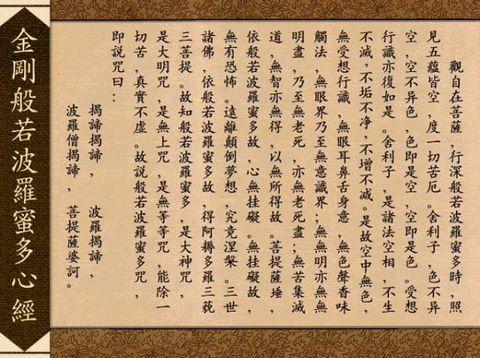 金剛般若波羅蜜多心經
觀自在菩薩，行深般若波羅蜜多時，照
見五蘊皆空，度一切苦厄。舍利子，色不異
空，空不异色，色即是空，空即是色。受想
行識亦復如是。舍利子，是諸法空相，不生
不滅，不垢不净，不增不減。是故空中無色，
無受想行識，無眼耳鼻舌身意，無色聲香味
觸法，無眼界乃至無意識界；無無明亦無無
明盡，乃至無老死，亦無老死盡；無苦集滅
道，無智亦無得，以無所得故。菩提薩埵，
依般若波羅蜜多故，心無挂礙。無挂礙故，
無有恐怖。遠離顛倒夢想，究竟涅槃。三世
諸佛，依般若波羅蜜多故，得阿耨多羅三藐
三菩提。故知般若波羅蜜多，是大神咒，
是大明咒，是無上咒，是無等等咒，能除一
切苦，真實不虛。故說般若波羅蜜多咒，
即説咒曰：
揭諦揭諦，波羅揭諦，
波羅僧揭諦，菩提薩婆訶。